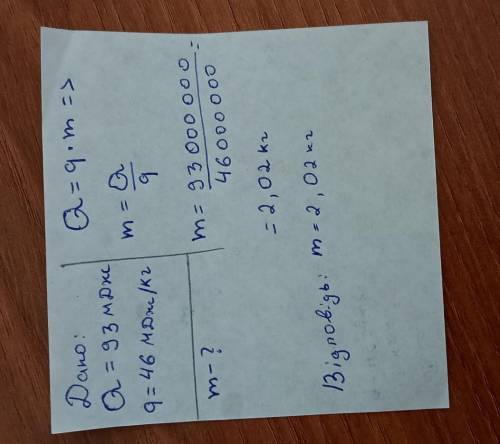 Дано:
Q = 93 мДж
q = 46 мДж/кг
m - ?
Q = q · m =>
m = Q/q
m = 93 000 000/46 000 000 =
= 2,02 кг
Відповідь: m = 2,02 кг